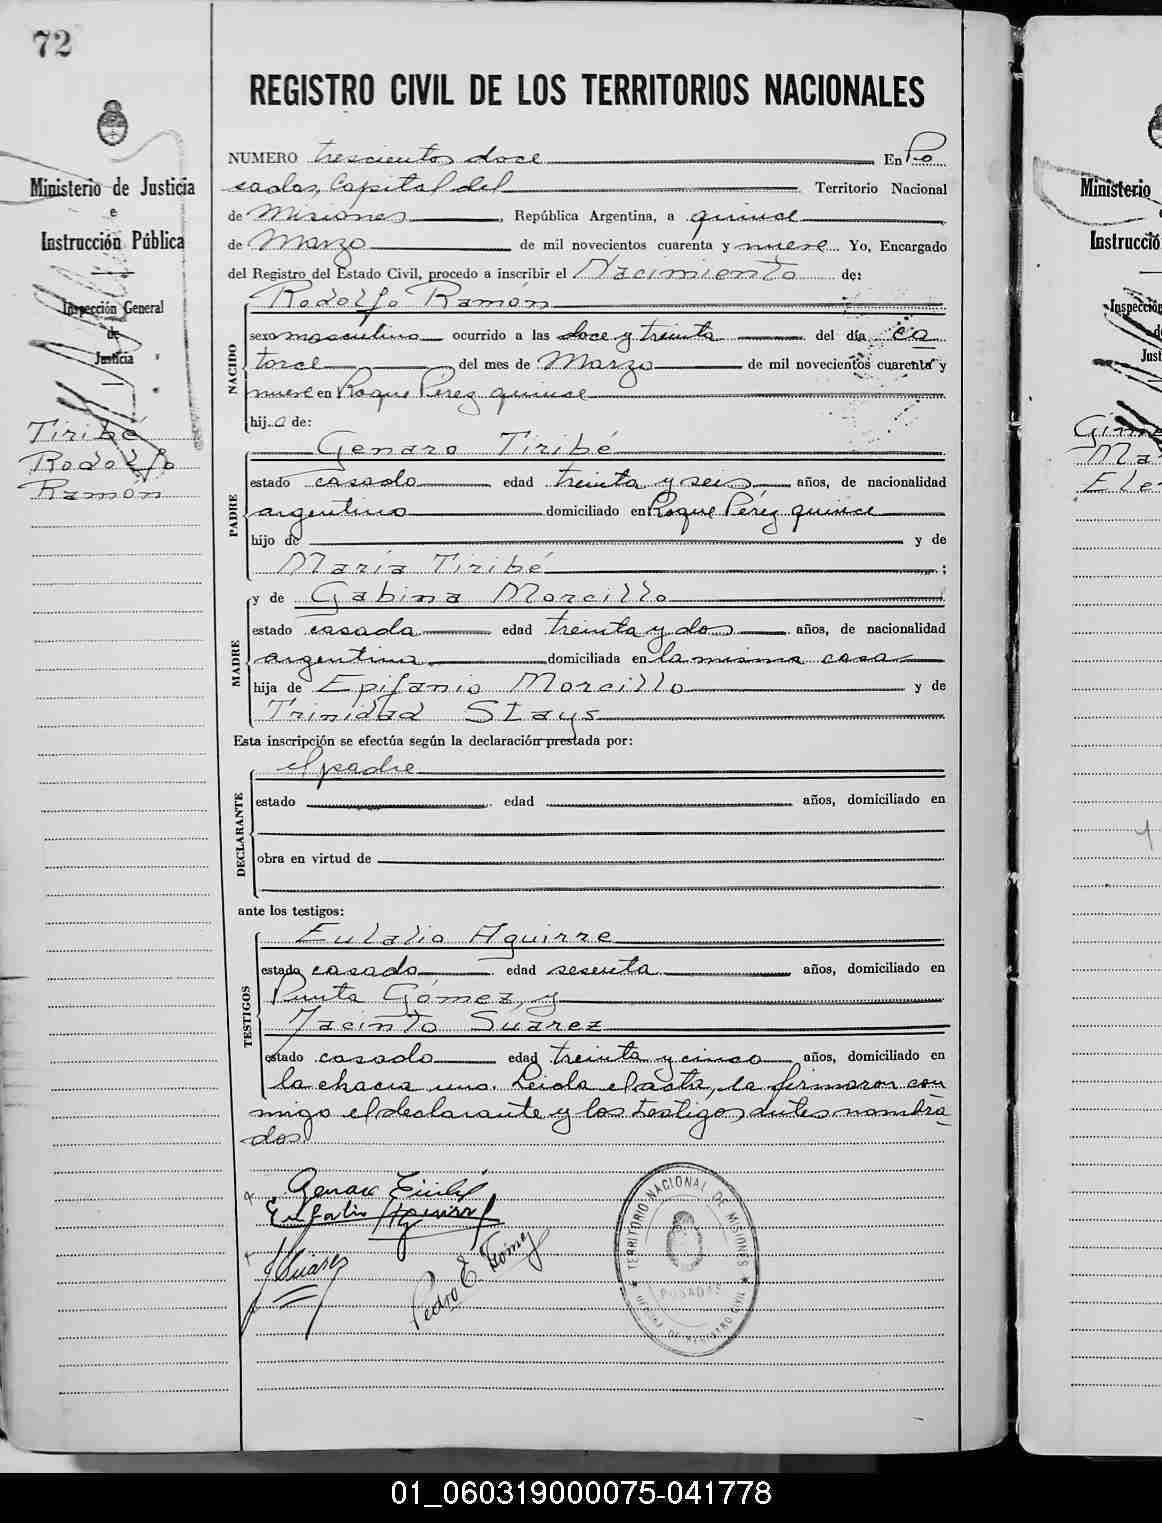 72
REGISTRO CIVIL DE LOS TERRITORIOS NACIONALES
Ministerio de Justicia
e
Instrucción Pública
Inspección General
de
Justicia
Tiribé
Rodolfo
Ramón
NUMERO trescientos doce En Po
sadas, Capital del Territorio Nacional
de Misiones, República Argentina, a quince
de Marzo de mil novecientos cuarenta y nueve Yo, Encargado
del Registro del Estado Civil, procedo a inscribir el Nacimiento de:
Rodolfo Ramón
NACIDO
sexo masculino ocurrido a las doce y treinta del día ca
torce del mes de Marzo de mil novecientos cuarenta y
nueve en Roque Pérez quince
hijo de:
Genaro Tiribé
PADRE
estado casado edad treinta y seis años, de nacionalidad
argentino domiciliado en Roque Pérez quince
hijo de y de
María Tiribé ;
y de Gabina Morcillo
MADRE
estado casada edad treinta y dos años, de nacionalidad
argentina domiciliada en la misma casa
hija de Epifanio Morcillo y de
Trinidad Stays
Esta inscripción se efectúa según la declaración prestada por:
el padre
DECLARANTE
estado edad años, domiciliado en
obra en virtud de
ante los testigos:
Eulalio Aguirre
TESTIGOS
estado casado edad sesenta años, domiciliado en
Punta Gómez, y
Jacinto Suárez
estado casado edad treinta y cinco años, domiciliado en
la chacra uno. Leida el acta, la firmaron con
migo el declarante y los testigos antes nombra
dos.
Genaro Tiribé
Eulalio Aguirre
J Suárez
Pedro E.
TERRITORIO NACIONAL DE MISIONES
POSADAS
OFICINA DE REGISTRO CIVIL
Ministerio
Instrucció
Inspección
d
Just
Gim
Ma
Ele
01_060319000075-041778